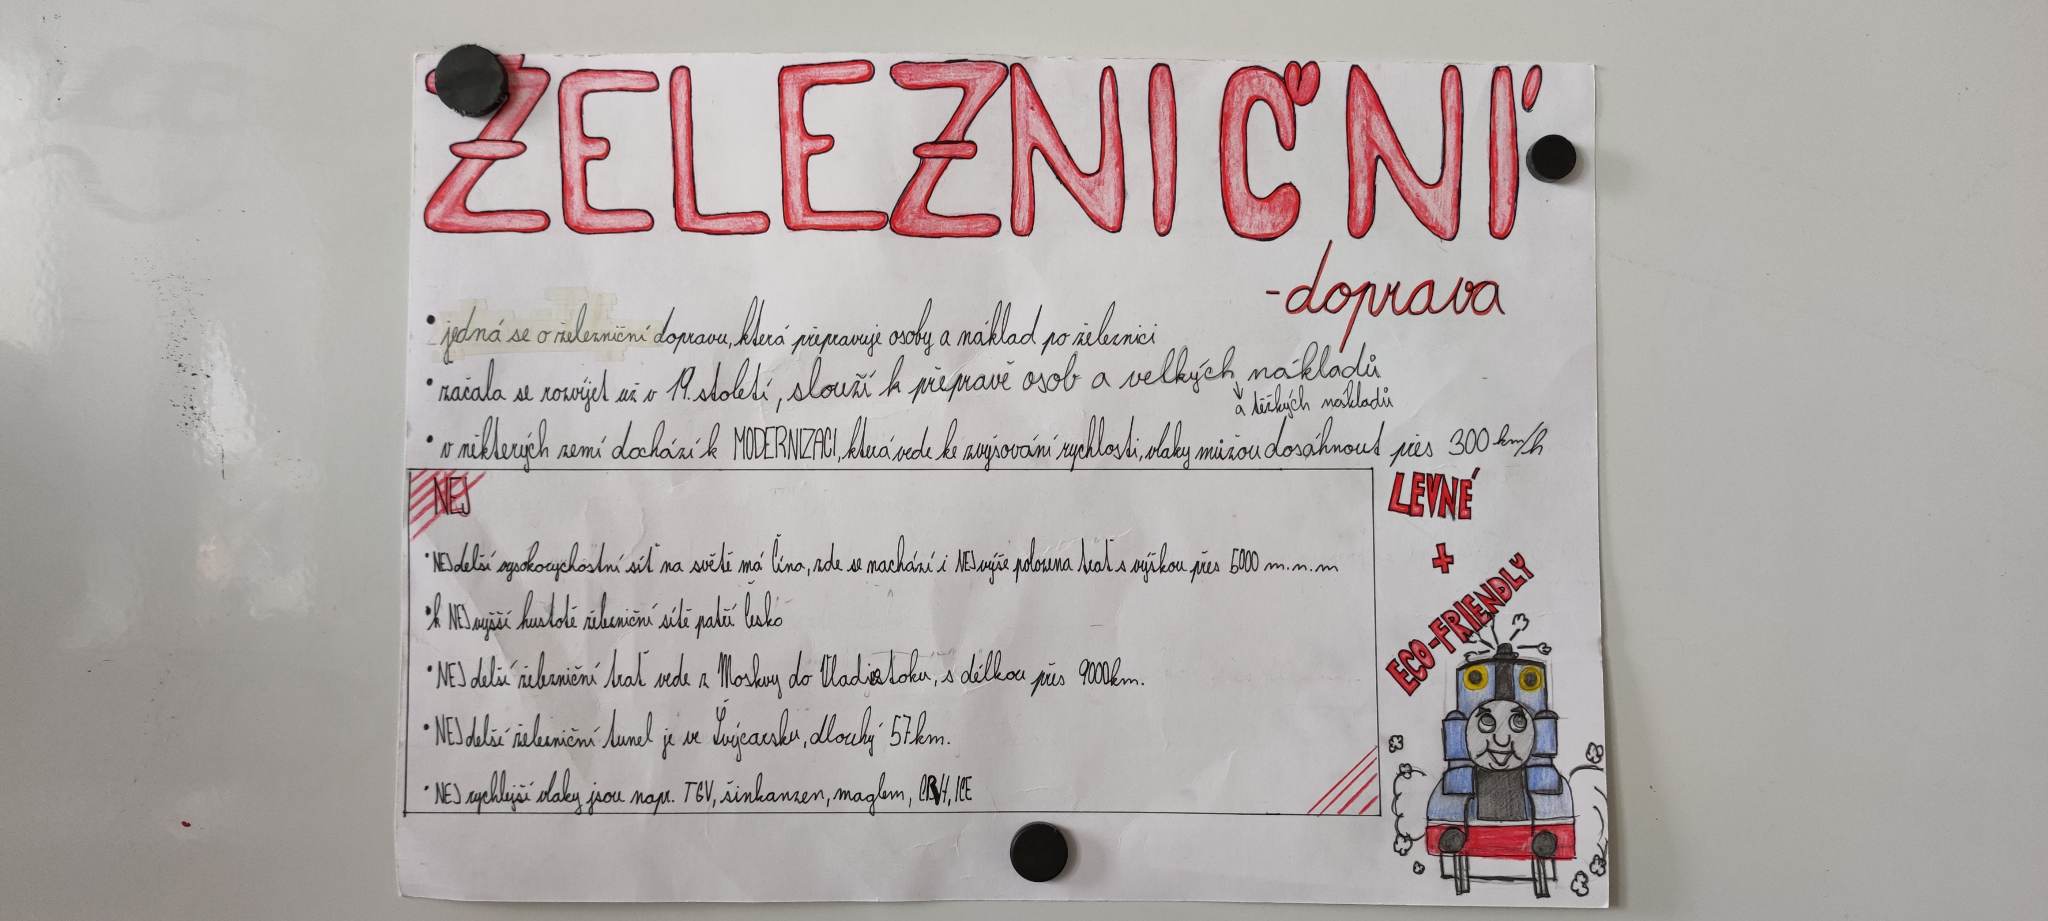 ŽELEZNIČNÍ
-doprava
• jedná se o železniční dopravu, která přepravuje osoby a náklad po železnici
• začala se rozvíjet už v 19. století, slouží k přepravě osob a velkých nákladů
a těžkých nákladů
• v některých zemí dochází k MODERNIZACI, která vede ke zvyšování rychlosti, vlaky můžou dosáhnout přes 300 km/h
NEJ
• NEJdelší vysokorychlostní síť na světě má Čína, zde se nachází i NEJvýše položena trať s výškou přes 5000 m.n.m
• k NEJvyšší hustotě železniční sítě patří Česko
• NEJdelší železniční trať vede z Moskvy do Vladivstoku, s délkou přes 9000km.
• NEJdelší železniční tunel je ve Švýcarsku, dlouhý 57km.
• NEJrychlejší vlaky jsou např. TGV, šinkanzen, maglem, CRH, ICE
LEVNÉ
+
ECO-FRIENDLY